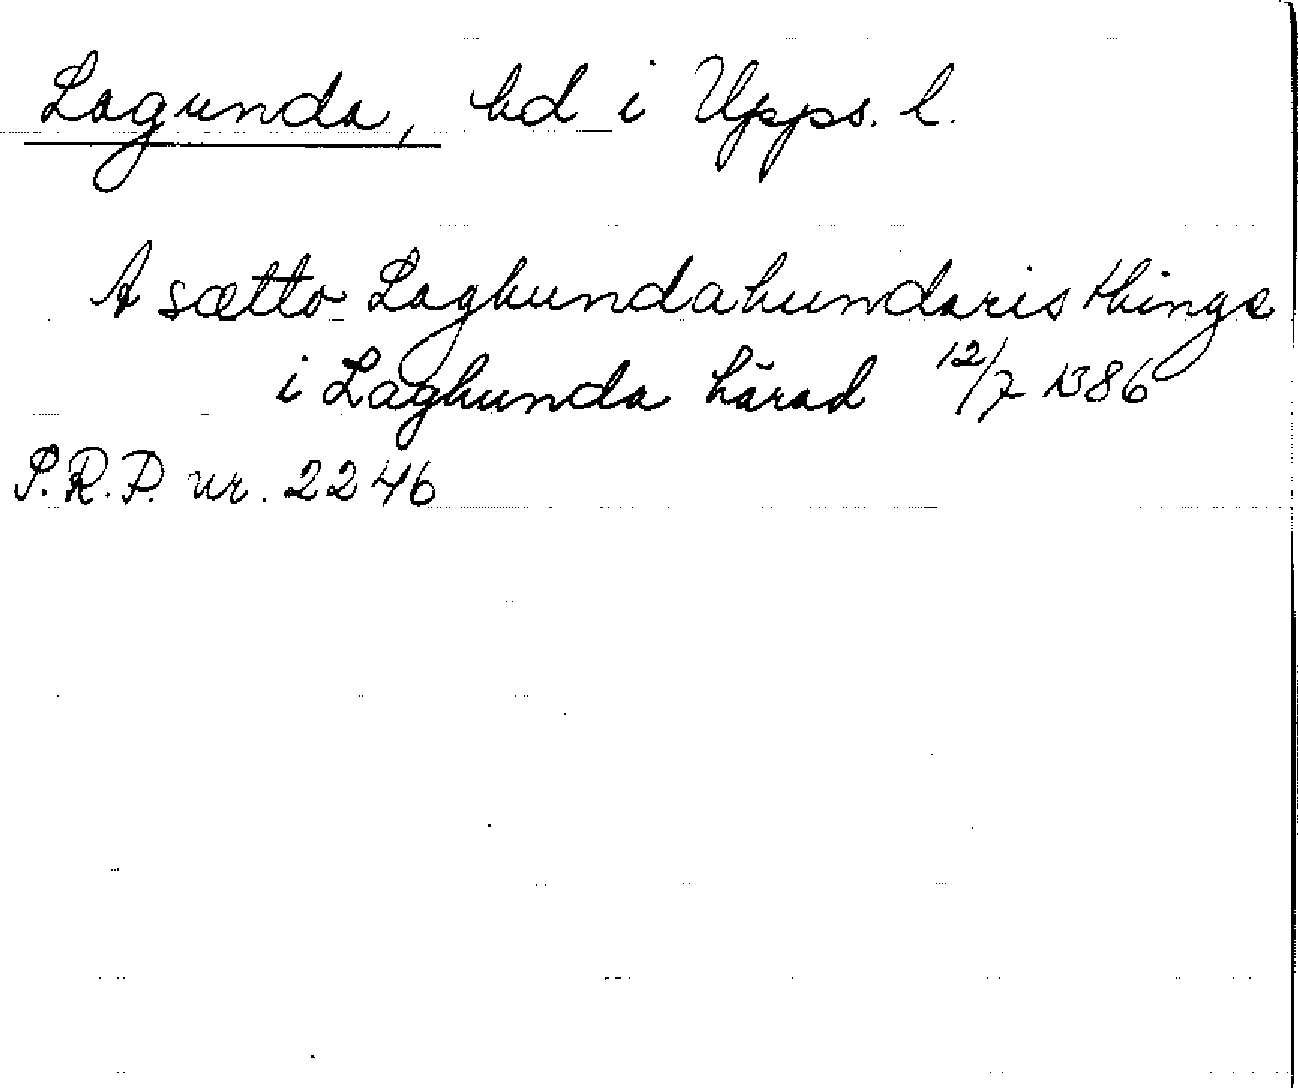 Lagunda, hd i Upps. l.
A sætto Laghundahundaris thinge
i Laghunda härad 12/7 1386
S.R.P. nr. 2246